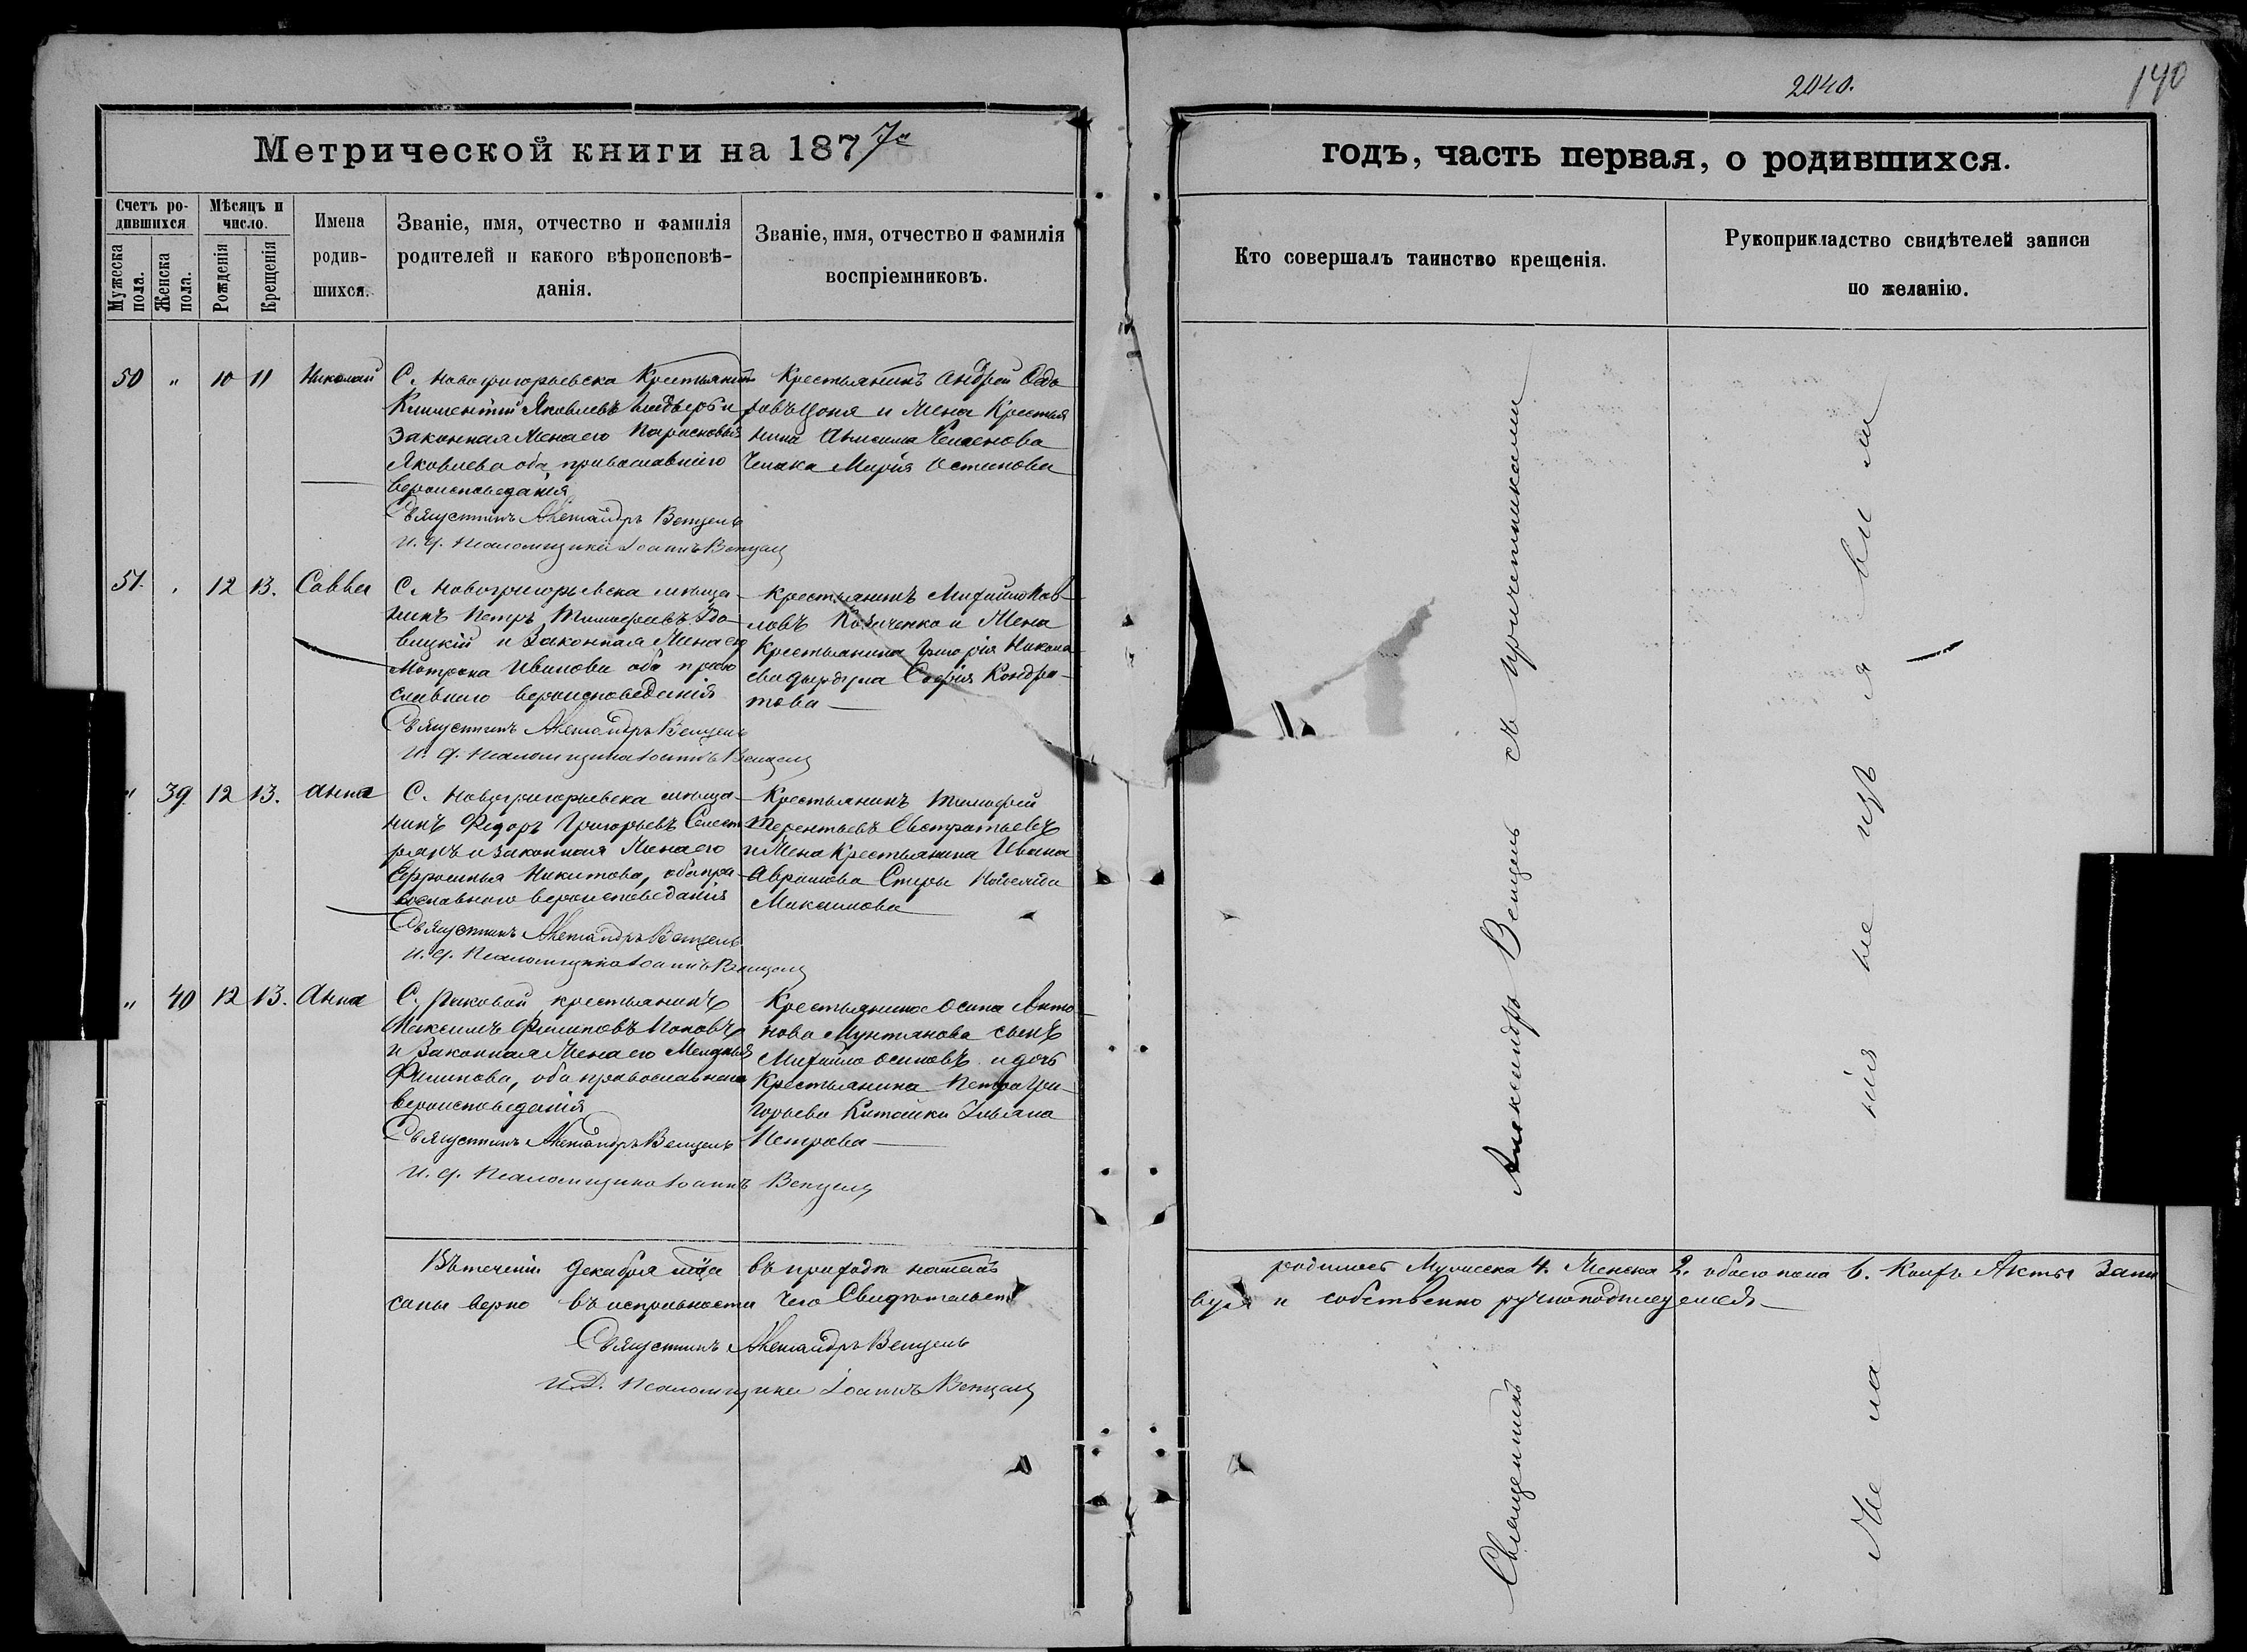 2040.
190
Метрической книги на 1877й
годъ, часть первая, о родившихся.
Счетъ родившихся
Мужеска пола.
Женска пола.
Мѣсяцъ и число.
Рожденія
Крещенія
Имена родившихся.
Званіе, имя, отчество и фамилія
родителей и какого вѣроисповѣ-
данія.
Званіе, имя, отчество и фамилія
воспріемниковъ.
Кто совершалъ таинство крещенія.
Рукоприкладство свидѣтелей записи
по желанію.
50 " 10 11 Николай
С. Новогригорьевска Крестьянинъ
Климентій Яковлевъ и
Законная Жена его
Яковлева оба православнаго
вероисповеданія
Священникъ Александръ Венцель
И. д. Псаломщика Іоаннъ Венцель
Крестьянинъ Андрей Ѳедо
ровъ Цопя и Жена Крестья
нина
Марія Остинова
51. " 12 13. Савва
С. Новогригорьевска мѣща-
нинъ Петръ Тимофеевъ
и Законная Жена его
Мотрона Иванова оба право
славнаго вероисповеданія
Священникъ Александръ Венцель
И. д. Псаломщика Іоаннъ Венцель
Крестьянинъ Михайло Пав-
ловъ Козаченко и Жена
Крестьянина Григорія Никола
Софія Кондра-
това
" 39 12 13. Анна
С. Новогригорьевска мѣща-
нинъ Федоръ Григорьевъ Селест
рянъ и законная Жена его
Ефросинья Никитова, оба пра-
вославнаго вероисповеданія
Священникъ Александръ Венцель
И. д. Псаломщика Іоаннъ Венцель
Крестьянинъ Тимофей
Терентьевъ Евстратьевъ
и Жена Крестьянина Ивана
Аврамова Стеры
Максимова
" 40 12 13. Анна
С. Раковой крестьянинъ
Максимъ Филиповъ Поповъ
и Законная Жена его
Филипова, оба православнаго
вероисповеданія
Священникъ Александръ Венцель
И. д. Псаломщика Іоаннъ Венцель
Крестьянина Осипа Анто-
нова Мунтянова сынъ
Михайло Осиповъ и дочь
Крестьянина Петра Гри-
горьева Киташки Ульяна
Петрова
Въ теченіи Декабря мца въ приходѣ нашемъ родилось Мужеска 4. Женска 2. обоего пола 6. Акты запи
саны верно въ исправности чего Свидѣтельст вуя и собственно ручно подписуемся
Священникъ Александръ Венцель
И. Д. Псаломщика Іоаннъ Венцель
Священникъ Александръ Венцель съ причетниками
Желанія не изъявили